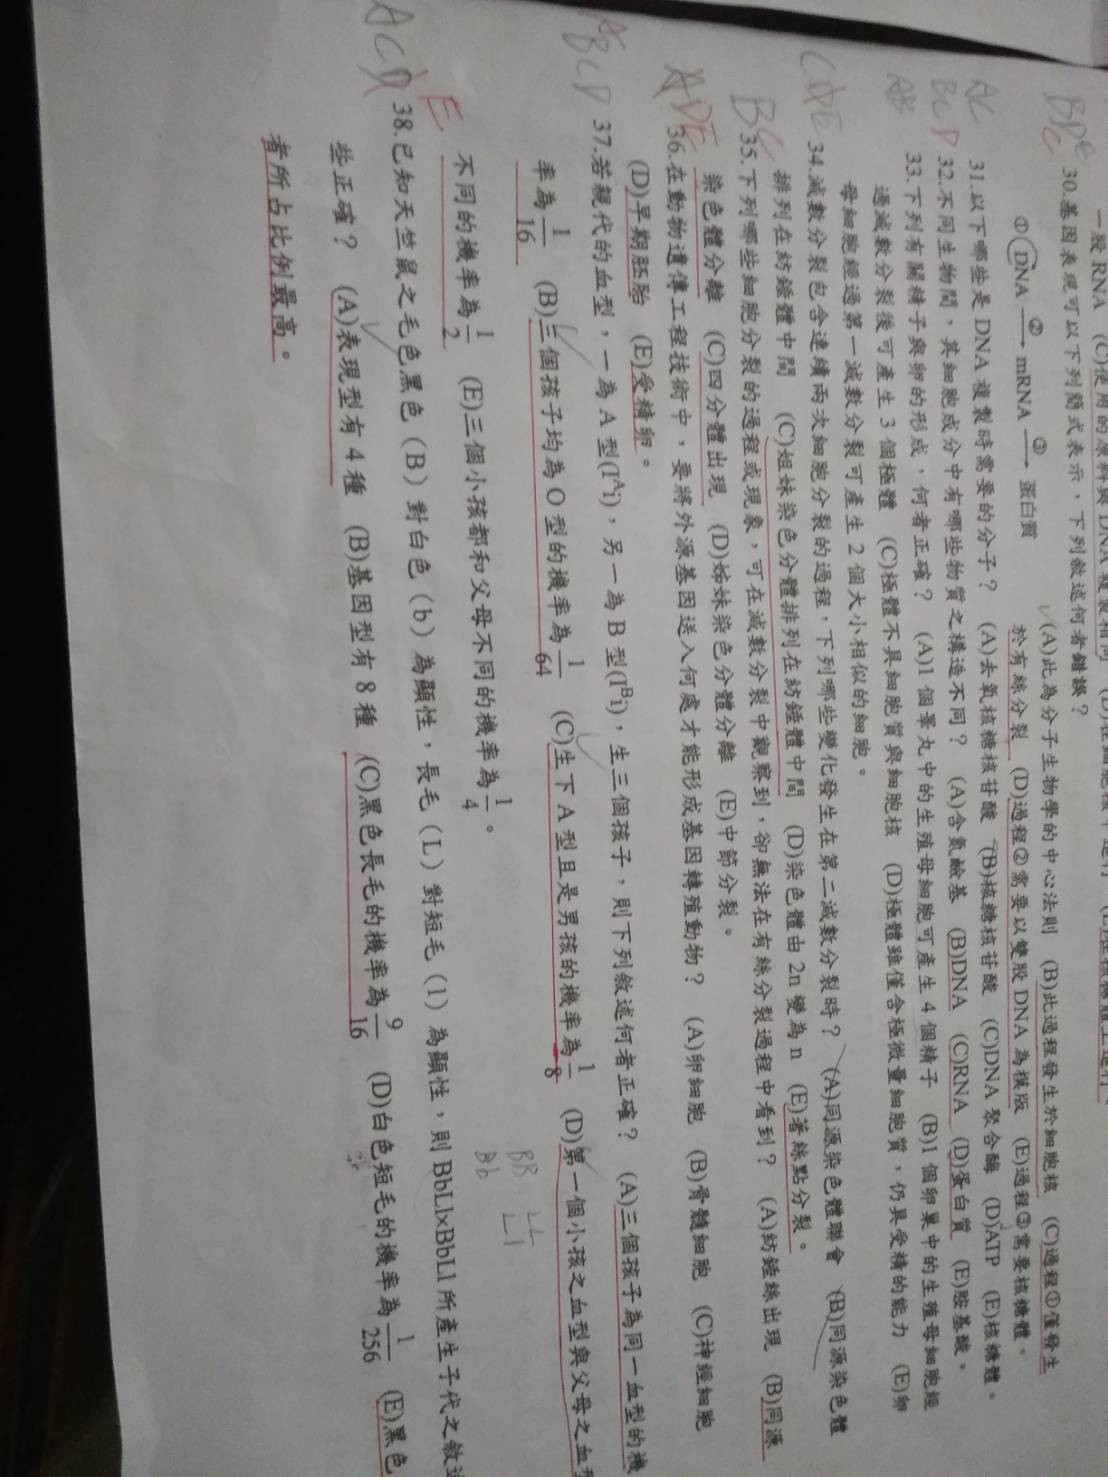 一股 RNA (C)使用的原料與 DNA 複製相同
BD
C
30.基因表現可以下列簡式表示，下列敘述何者錯誤？
① DNA ②→ mRNA ③→ 蛋白質
(A)此為分子生物學的中心法則 (B)此過程發生於細胞核 (C)過程①僅發生
於有絲分裂 (D)過程②需要以雙股 DNA 為模版 (E)過程③需要核糖體。
AC
31.以下哪些是 DNA 複製時需要的分子？ (A)去氧核糖核苷酸 (B)核糖核苷酸 (C)DNA 聚合酶 (D)ATP (E)核糖體。
BCD
32.不同生物間，其細胞成分中有哪些物質之構造不同？ (A)含氮鹼基 (B)DNA (C)RNA (D)蛋白質 (E)胺基酸。
AB
33.下列有關精子與卵的形成，何者正確？ (A)1 個睪丸中的生殖母細胞可產生 4 個精子 (B)1 個卵巢中的生殖母細胞經
過減數分裂後可產生 3 個極體 (C)極體不具細胞質與細胞核 (D)極體雖僅含極微量細胞質，仍具受精的能力 (E)卵
母細胞經過第一減數分裂可產生 2 個大小相似的細胞。
CDE
34.減數分裂包含連續兩次細胞分裂的過程，下列哪些變化發生在第二減數分裂時？ (A)同源染色體聯會 (B)同源染色體
排列在紡錘體中間 (C)姐妹染色分體排列在紡錘體中間 (D)染色體由 2n 變為 n (E)著絲點分裂。
BC
35.下列哪些細胞分裂的過程或現象，可在減數分裂中觀察到，卻無法在有絲分裂過程中看到？ (A)紡錘絲出現 (B)同源
染色體分離 (C)四分體出現 (D)姊妹染色分體分離 (E)中節分裂。
ADE
36.在動物遺傳工程技術中，要將外源基因送入何處才能形成基因轉殖動物？ (A)卵細胞 (B)骨髓細胞 (C)神經細胞
(D)早期胚胎 (E)受精卵。
A
BCD
37.若親代的血型，一為 A 型(Iᴬi)，另一為 B 型(Iᴮi)，生三個孩子，則下列敘述何者正確？ (A)三個孩子為同一血型的機
率為 1/16 (B)三個孩子均為 O 型的機率為 1/64 (C)生下 A 型且是男孩的機率為 1/8 (D)第一個小孩之血型與父母之血型
不同的機率為 1/2 (E)三個小孩都和父母不同的機率為 1/4。
BB LL
Bb Ll
ACD
E
38.已知天竺鼠之毛色黑色（B）對白色（b）為顯性，長毛（L）對短毛（l）為顯性，則 BbLl×BbLl 所產生子代之敘述
些正確？ (A)表現型有 4 種 (B)基因型有 8 種 (C)黑色長毛的機率為 9/16 (D)白色短毛的機率為 1/256 (E)黑色
者所占比例最高。